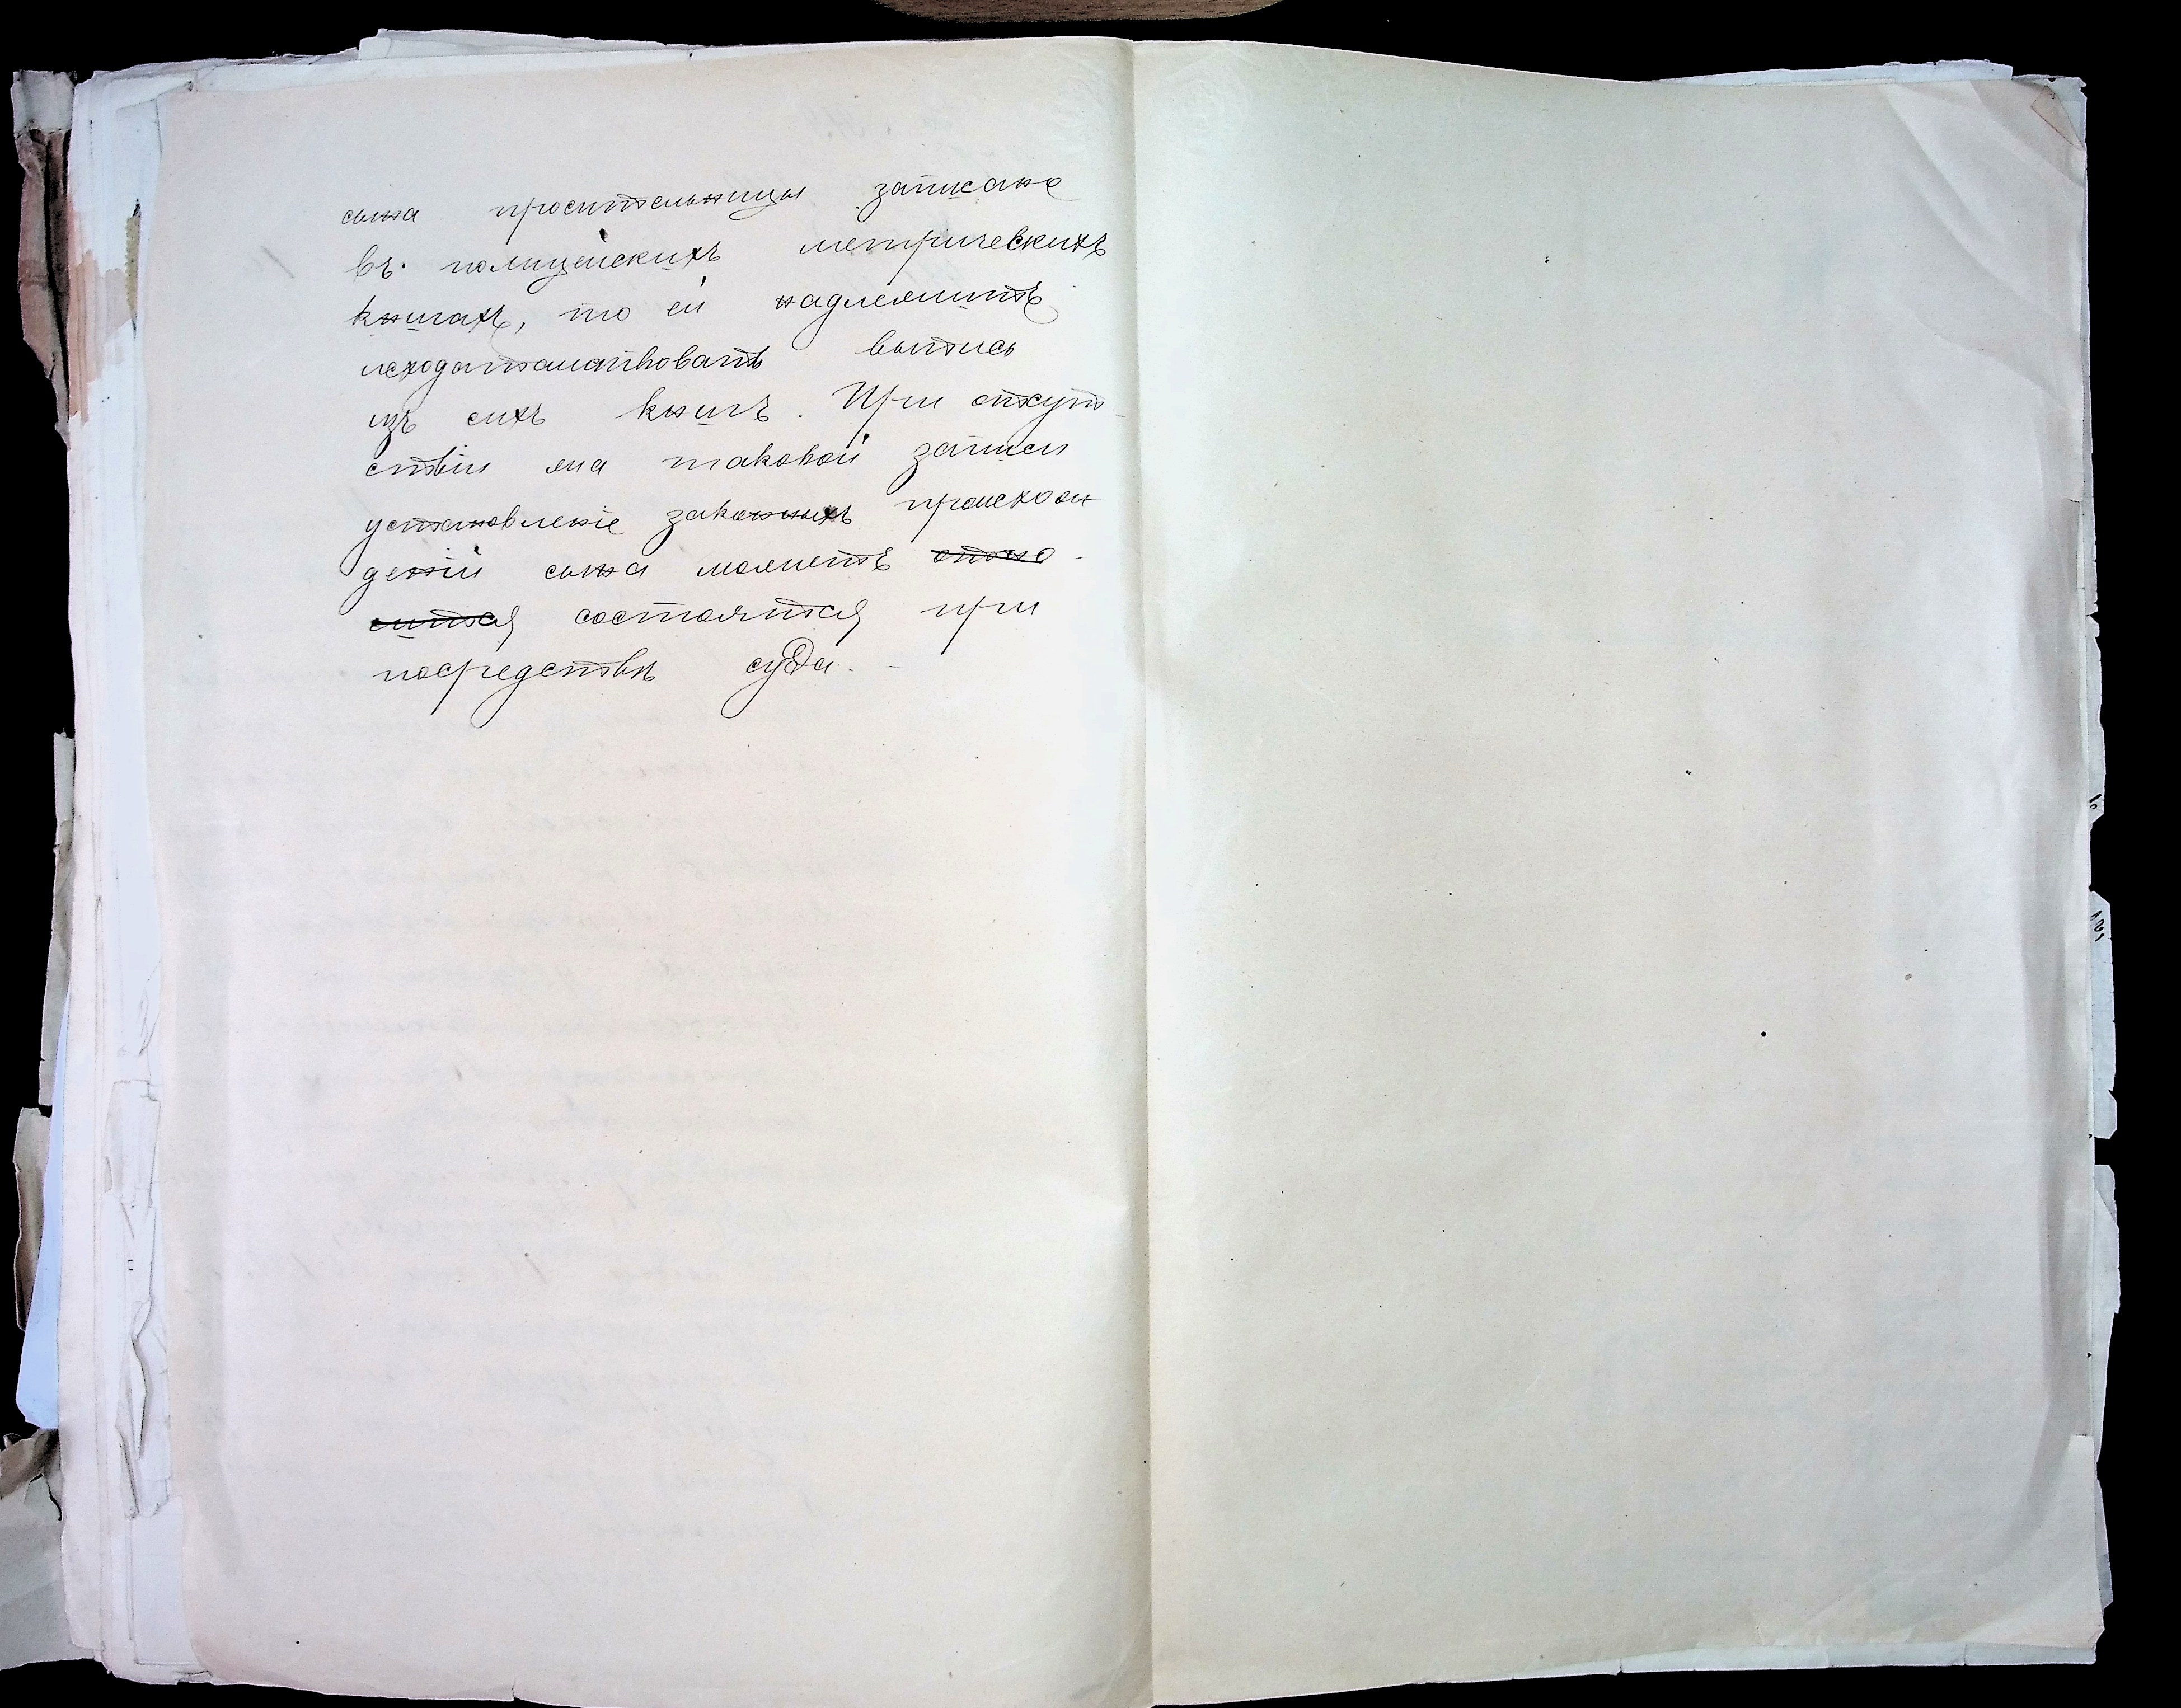 сына просительницы записано
въ полицейскихъ метрическихъ
книгахъ, то ей надлежитъ
исходатайствовать выпись
изъ сихъ книгъ. При отсут-
ствіи же таковой записи
установленіе законныхъ происхож
деній сына можетъ отно-
ситься состояться при
посредствѣ суда. -